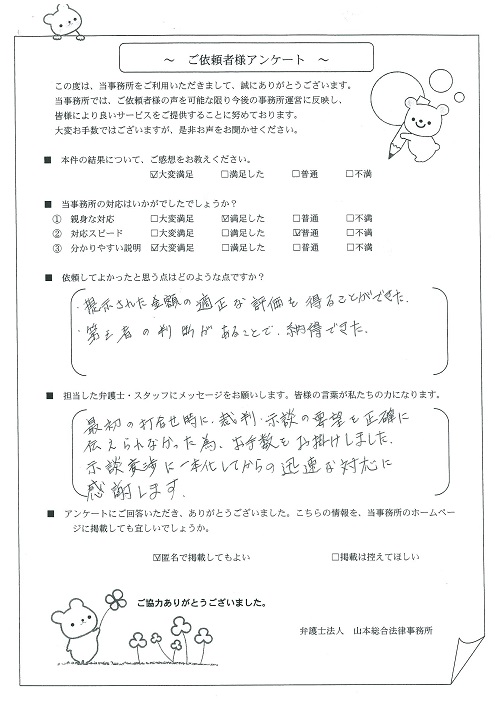 ～ ご依頼者様アンケート ～
この度は、当事務所をご利用いただきまして、誠にありがとうございます。
当事務所では、ご依頼者様の声を可能な限り今後の事務所運営に反映し、
皆様により良いサービスをご提供することに努めております。
大変お手数ではございますが、是非お声をお聞かせください。
■ 本件の結果について、ご感想をお教えください。
☑大変満足 □満足した □普通 □不満
■ 当事務所の対応はいかがでしたでしょうか？
① 親身な対応 □大変満足 ☑満足した □普通 □不満
② 対応スピード □大変満足 □満足した ☑普通 □不満
③ 分かりやすい説明 ☑大変満足 □満足した □普通 □不満
■ 依頼してよかったと思う点はどのような点ですか？
・提示された金額の適正な評価を得ることができた.
・第三者の判断があることで、納得できた.
■ 担当した弁護士・スタッフにメッセージをお願いします。皆様の言葉が私たちの力になります。
最初の打合せ時に、裁判・示談の要望を正確に
伝えられなかった為、お手数をお掛けしました.
示談交渉に一本化してからの迅速な対応に
感謝します.
■ アンケートにご回答いただき、ありがとうございました。こちらの情報を、当事務所のホームペー
ジに掲載しても宜しいでしょうか。
☑匿名で掲載してもよい □掲載は控えてほしい
ご協力ありがとうございました。
弁護士法人 山本総合法律事務所